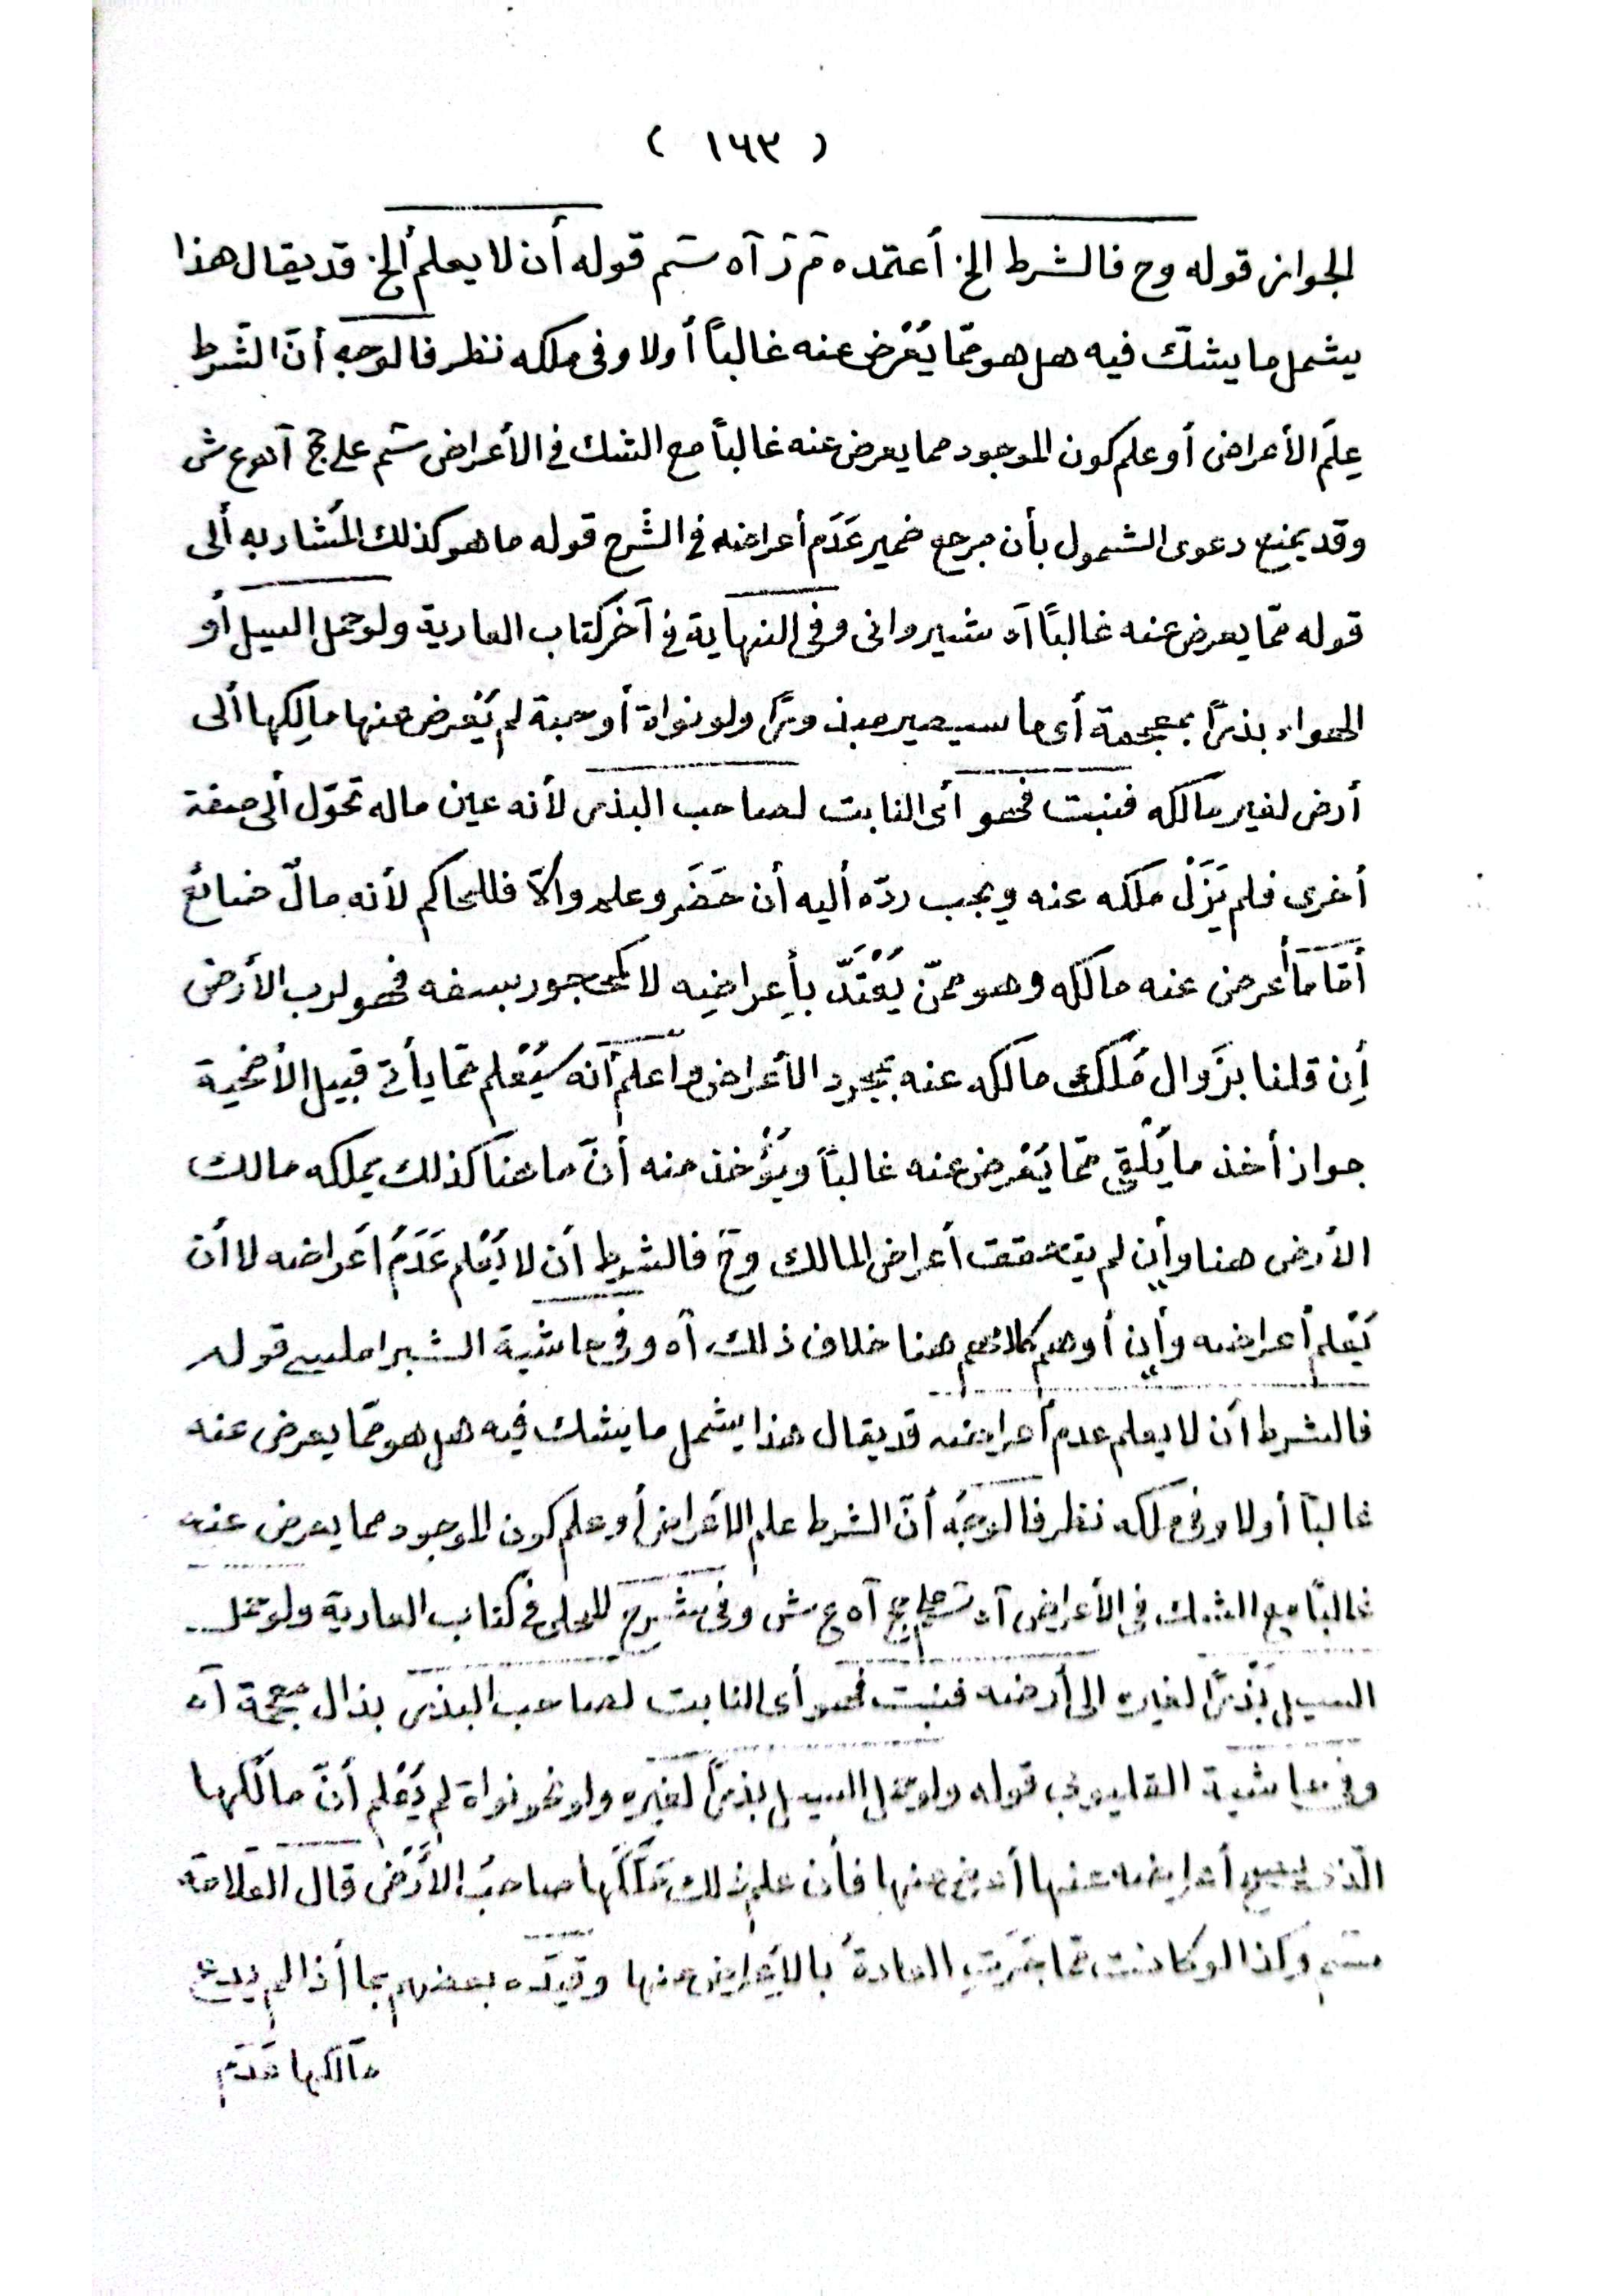 ( ١٦٣ )
الجواز قوله وح فالشرط الخ أعتمده مَ رَ آه سَم قوله أن لا يعلم ألخ قد يقال هذا
يشمل ما يشكّ فيه هل هو ممّا يُعْرض عنه غالباً أولا وفى ملكه نظر فالوجه أنّ الشّرط
عِلَم الأعراض أو علم كون الموجود مما يعرض عنه غالباً مع الشك في الأعراض سَم على حج آه ع ش
وقد يمنع دعوى الشمول بأن مرجع ضمير عَدَم أعراضه في الشَرح قوله ما هو كذلك المُشار به ألى
قوله ممّا يعرض عنه غالباً آه شيروانى وفى النهاية في آخر كتاب العارية ولو حمل السيل أو
الهواء بذرًا بمعجمة أى ما سيصير مبذورًا ولو نواة أو حبة لم يُعْرض عنها مالِكها ألى
أرض لغير مالكه فنبت فهو أى النابت لصاحب البذر لأنه عين ماله تحوّل ألى صفة
أخرى فلم يَزَلْ ملكه عنه ويجب ردّه أليه أن حَضَر وعلم وإلّا فللحاكم لأنه مالٌ ضائعٌ
أمّا ما أعرض عنه مالكه وهو ممنّ يُعْتَدّ بأِعراضِه لا كمحجور بسفه فهو لرب الأرض
أِن قلنا بزَوال مُلك مالكه عنه بمجرد الأعراض واعلم أنه سَيُعْلم ممّا يأتى قبيل الأضحية
جواز أخذ ما يُلْقى ممّا يُعْرض عنه غالباً ويُؤْخذ منه أنّ ما هنا كذلك يملكه مالك
الأرض هنا وأِن لم يتحقق أعراض المالك وحَ فالشرط أن لا يُعْلم عَدَمُ أعراضه لا أن
يُعْلم أعراضه وأِن أوهم كلامهم هنا خلاف ذلك آه وفى حاشية الشبراملسى قوله
فالشرط أن لا يعلم عدم أعراضه قد يقال هذا يشمل ما يشك فيه هل هو ممّا يعرض عنه
غالباً أولا وفى ملكه نظر فالوجهُ أنّ الشرط علم الأعراض أو علم كون الموجود مما يعرض عنه
غالباً مع الشك فى الأعراض آه سَم على حج آه ع ش وفى شرح المحلى فى كتاب العارية ولو حمل
السيل بَذْرًا لغيره الى أرضه فنبت فهو أى النابت لصاحب البذر بذال معجمة آه
وفى حاشية القليوبى قوله ولو حمل السيل بذرًا لغيره ولو نحو نواة لم يُعْلم أنّ مالكها
الّذى يصح أعراضه عنها أعرض عنها فأن علم ذلك مَلَكَها صاحبُ الأَرْض قال العَلامَة
سَم وكذا لو كانت ممّا جَرَتِ العادةُ بالأِعراض عنها وقيّده بعضهم بما أذا لم يدع
مالكها عَدَمَ